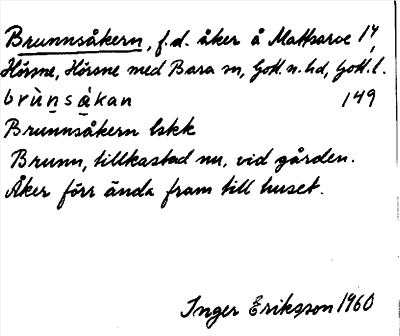 Brunnsåkern, f.d. åker å Mattsarve 1⁴,
Hörsne, Hörsne med Bara sn, Gotl. n. hd, Gotl. l.
brùn̠sa̠̍kan 149
Brunnsåkern lskk
Brunn, tillkastad nu, vid gården.
Åker förr ända fram till huset.
Inger Eriksson 1960